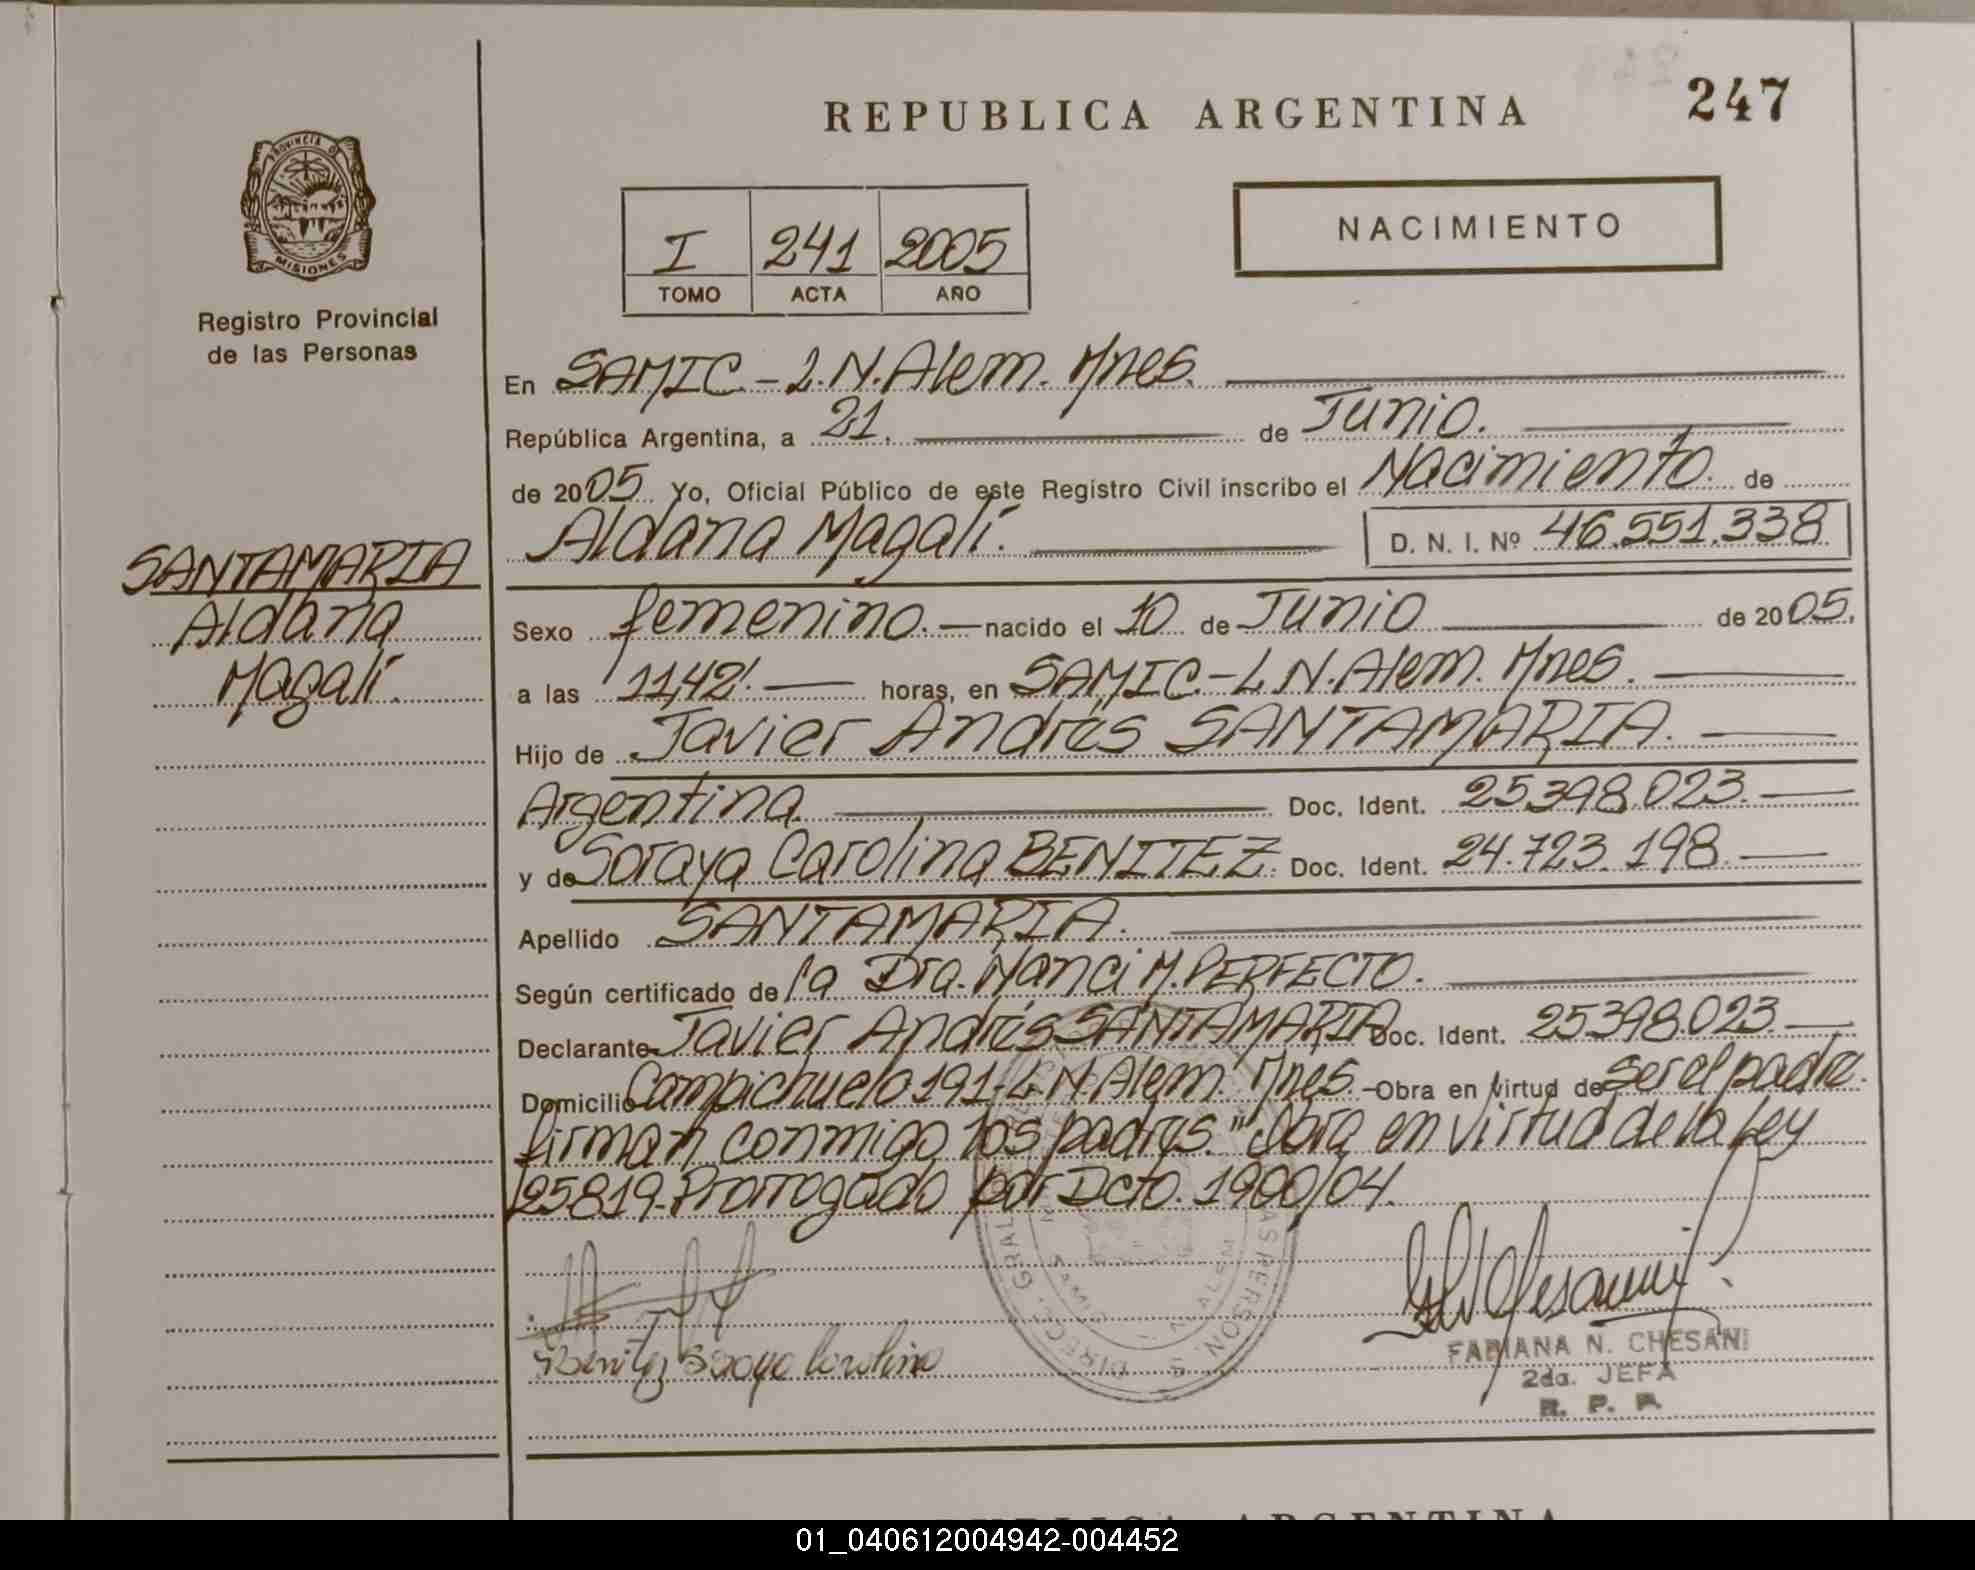 REPUBLICA ARGENTINA
247
PROVINCIA DE
MISIONES
Registro Provincial
de las Personas
I 241 2005
TOMO ACTA AÑO
NACIMIENTO
En SAMIC.- L.N.Alem. Mnes.
República Argentina, a 21. de Junio.
de 2005 Yo, Oficial Público de este Registro Civil inscribo el Nacimiento. de
Aldana Magalí. D. N. I. Nº 46.551.338
SANTAMARIA
Aldana
Magalí.
Sexo femenino. nacido el 10 de Junio de 2005.
a las 11,42'. horas, en SAMIC.- L N.Alem. Mnes.
Hijo de Javier Andrés SANTAMARIA.
Argentina. Doc. Ident. 25.398.023.
y de Soraya Carolina BENITEZ. Doc. Ident. 24.723.198.
Apellido SANTAMARIA.
Según certificado de la Dra. Nanci M. PERFECTO.
Declarante Javier Andrés SANTAMARIA Doc. Ident. 25398.023.
Domicilio Campichuelo 191-L.N.Alem. Mnes.-Obra en virtud de ser el padre.
firman conmigo los padres." Obra en virtud de la Ley
25819-Prorrogado por Dcto. 1900/04.
Benitez Soraya Carolina
FABIANA N. CHESANI
2da. JEFA
R. P. P.
01_040612004942-004452